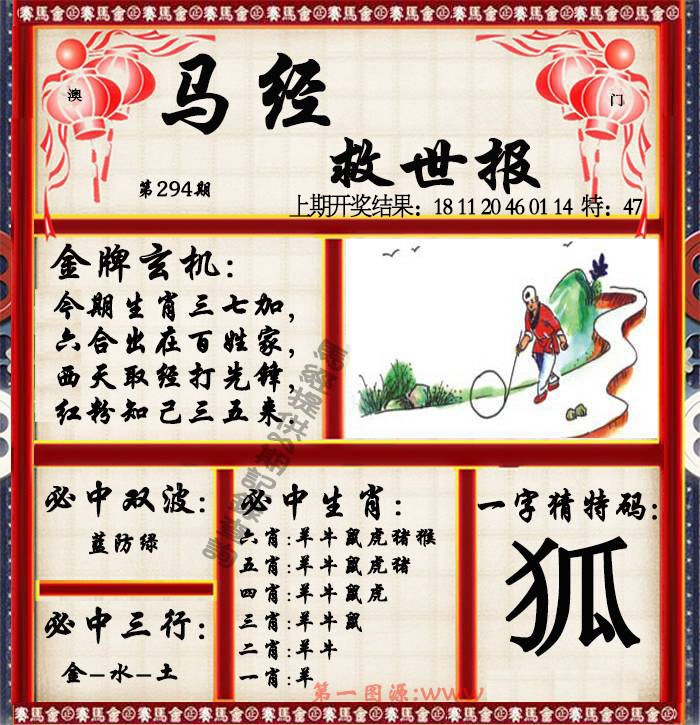 賽馬會正賽馬會正賽馬會正賽馬會正賽馬會正賽馬會正賽馬會正
澳
门
马经
救世报
第294期
上期开奖结果：18 11 20 46 01 14 特：47
金牌玄机：
今期生肖三七加，
六合出在百姓家，
西天取经打先锋，
红粉知己三五来.
必中双波：
蓝防绿
必中三行：
金-水-土
必中生肖：
六肖:羊牛鼠虎猪猴
五肖:羊牛鼠虎猪
四肖:羊牛鼠虎
三肖:羊牛鼠
二肖:羊牛
一肖:羊
一字猜特码：
狐
第一图源:www